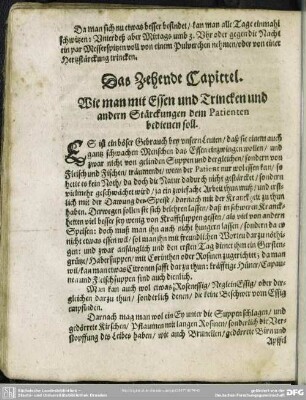 Da man sich nu etwas besser befindet / kan man alle Tage einmahl
schwitzen: Unterdeß aber Mittags umb 3. Uhr oder gegen die Nacht
ein par Messerspitzen voll von einem Pulverchen nehmen / oder von einer
Hertzstärckung trincken.
Das Zehende Capittel.
Wie man mit Essen und Trincken und
andern Stärckungen dem Patienten
bedienen soll.
ES ist ein böser Gebrauch bey unsern Leuten / daß sie einem auch
gantz schwachen Menschen das Essen einzwingen wollen / und
zwar nicht von gelinden Suppen und dergleichen / sondern von
Fleisch und Fischen / wann er
hette es kein Noth / da doch die Natur dadurch nicht gestärcket / sondern
vielmehr geschwächet wird / ja ein zwiefache Arbeit thun muß / und erst-
lich mit der Dawung der Speise / darnach mit der Kranckheit zu thun
haben. Derwegen sollen sie sich belehren lassen / daß in schweren Kranck-
heiten viel besser sey wenig von Suppen gessen / als viel von andern
Speisen: doch muß man ihn auch nicht hungern lassen / sondern da er
nicht etwas essen wil / sol man ihn mit freundlichen Worten darzu nöthi-
gen: und zwar anfänglich und den ersten Tag dienet ihm ein Gersten-
grütz / Habersuppen / mit Corinthen oder Rosinen zugericht: da man
wil / kan man etwas Citronen safft darzu thun: kräfftige Hüner / Capau-
nen und Fleischsuppen sind auch dienlich.
Man kan auch wol etwas Rosenessig / Neglein Essig / oder der-
gleichen darzu thun / sonderlich denen / die keine Beschwer vom Essig
empfinden.
Darnach mag man wol ein Ey unter die Suppen schlagen / und
gedörrete Kirschen / Pflaumen mit langen Rosinen / sonderlich die Ver-
stopffung des Leibes haben / wie auch Brunellen / gedörrete Birn und
Apffel